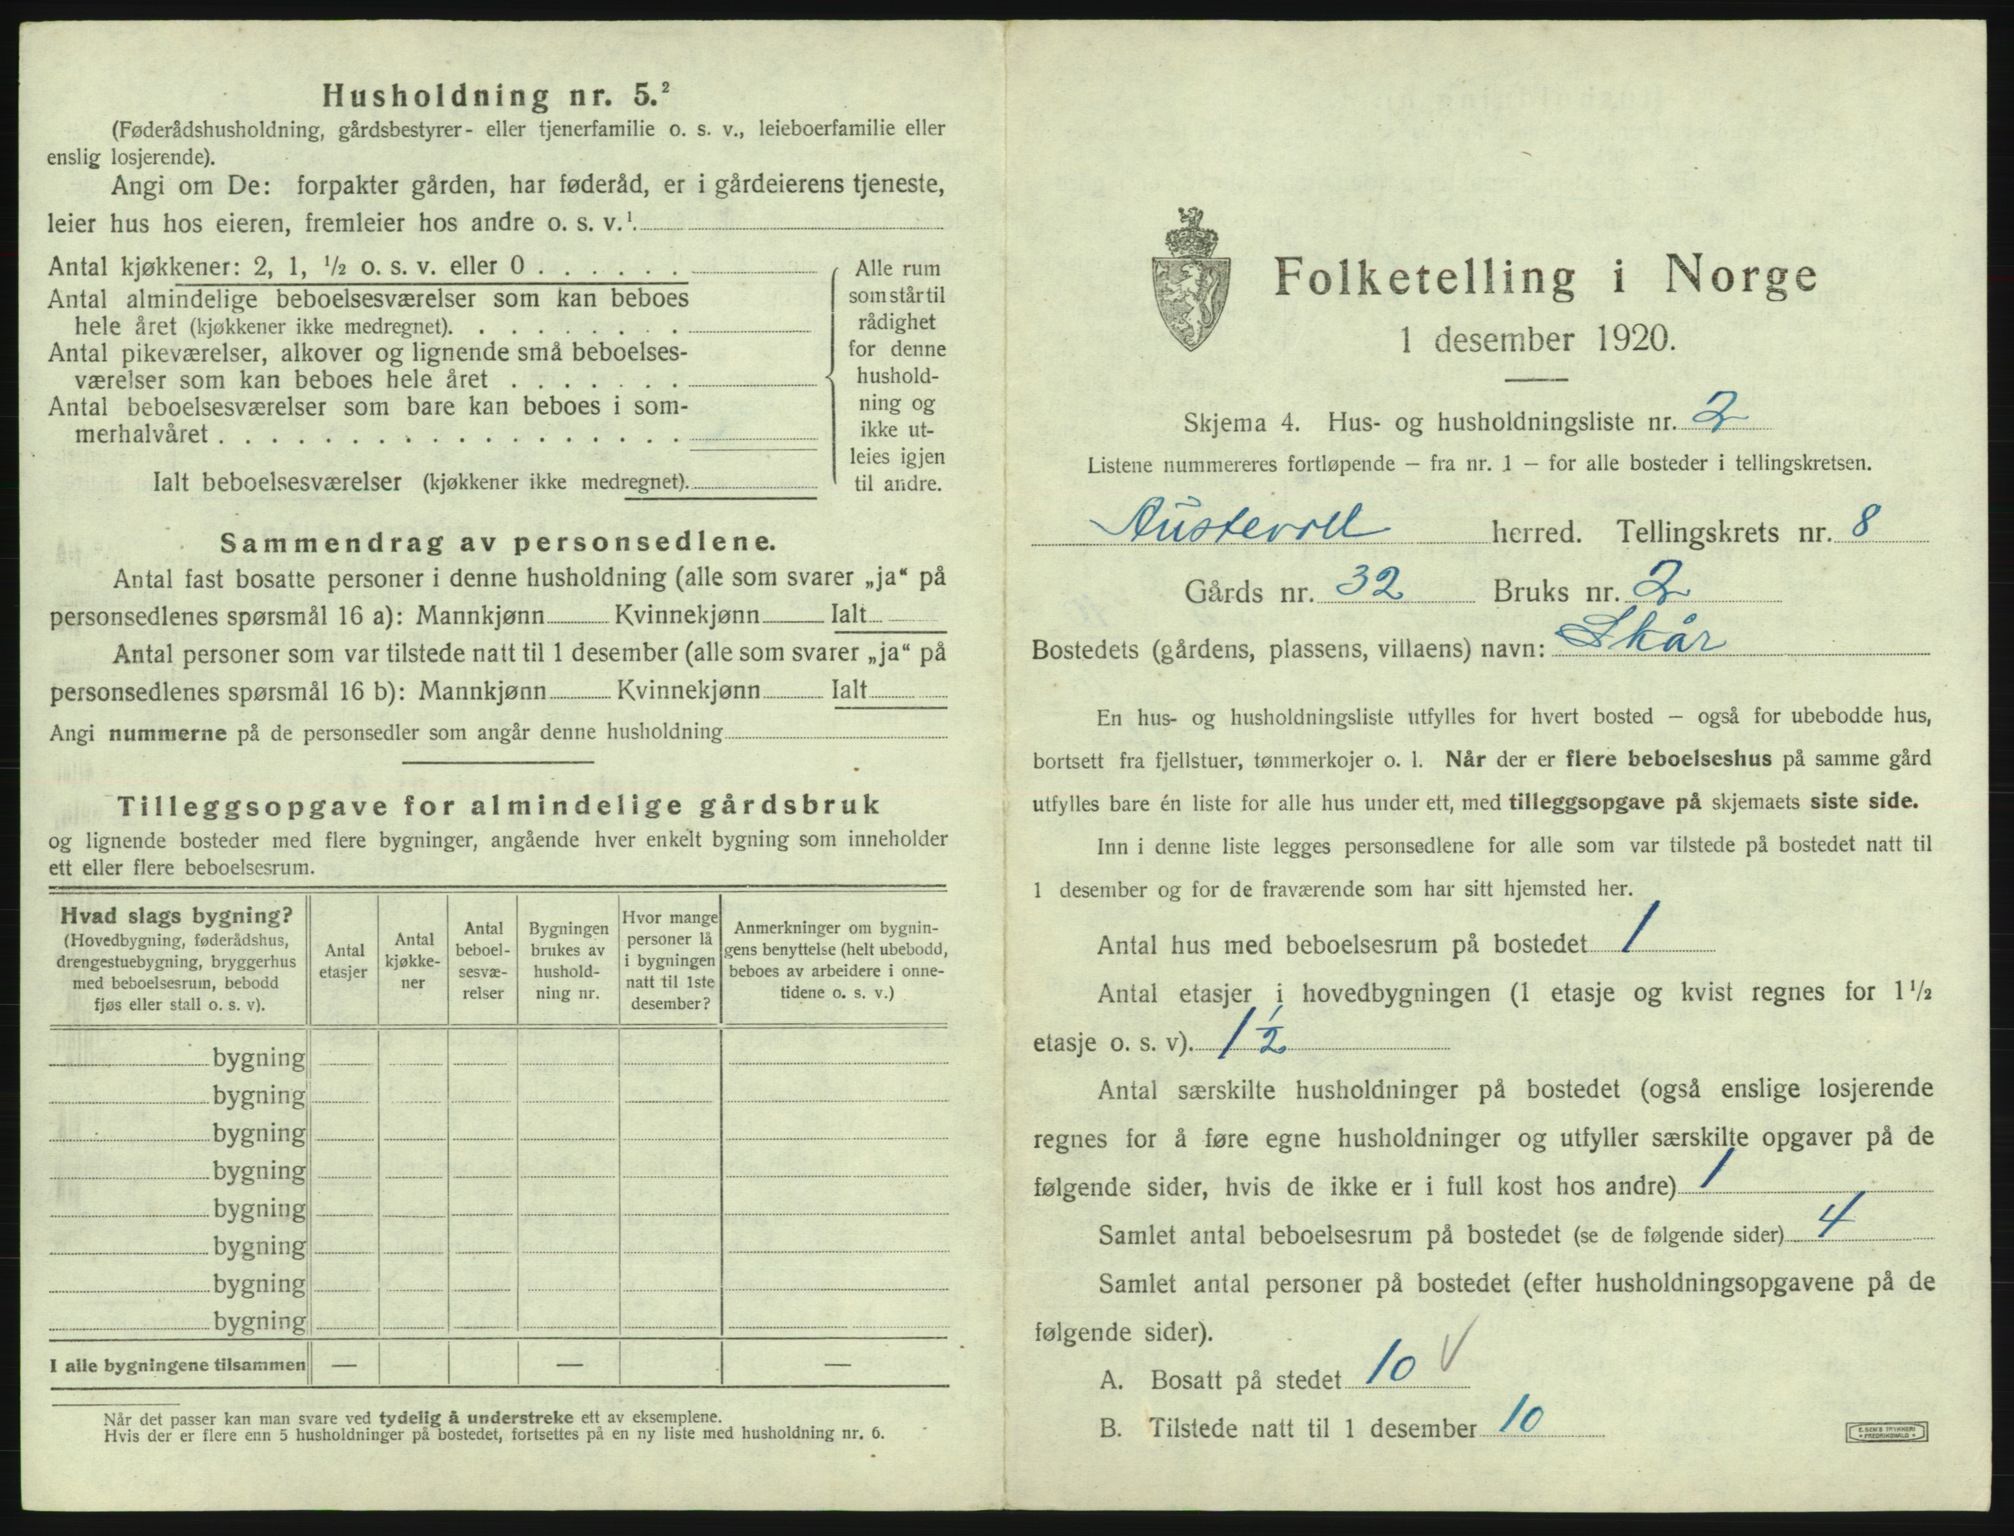 Husholdning nr. 5.²
(Føderådshusholdning, gårdsbestyrer- eller tjenerfamilie o. s. v., leieboerfamilie eller
enslig losjerende).
Angi om De: forpakter gården, har føderåd, er i gårdeierens tjeneste,
leier hus hos eieren, fremleier hos andre o. s. v.¹.
Antal kjøkkener: 2, 1, ½ o. s. v. eller 0 . . . . . .
Antal almindelige beboelsesværelser som kan beboes
hele året (kjøkkener ikke medregnet). . . . . . . . . .
Antal pikeværelser, alkover og lignende små beboelses-
værelser som kan beboes hele året . . . . . . .
Antal beboelsesværelser som bare kan beboes i som-
merhalvåret . . . . . . . . . . . . . . . . . .
Ialt beboelsesværelser (kjøkkener ikke medregnet).
Alle rum
som står til
rådighet
for denne
hushold-
ning og
ikke ut-
leies igjen
til andre.
Sammendrag av personsedlene.
Antal fast bosatte personer i denne husholdning (alle som svarer „ja“ på
personsedlenes spørsmål 16 a): Mannkjønn Kvinnekjønn Ialt
Antal personer som var tilstede natt til 1 desember (alle som svarer „ja“ på
personsedlenes spørsmål 16 b): Mannkjønn Kvinnekjønn Ialt
Angi nummerne på de personsedler som angår denne husholdning
Tilleggsopgave for almindelige gårdsbruk
og lignende bosteder med flere bygninger, angående hver enkelt bygning som inneholder
ett eller flere beboelsesrum.
Hvad slags bygning?
(Hovedbygning, føderådshus,
drengestuebygning, bryggerhus
med beboelsesrum, bebodd
fjøs eller stall o. s. v).
Antal
etasjer
Antal
kjøkke-
ner
Antal
beboel-
sesvæ-
relser
Bygningen
brukes av
hushold-
ning nr.
Hvor mange
personer lå
i bygningen
natt til 1ste
desember?
Anmerkninger om bygnin-
gens benyttelse (helt ubebodd,
beboes av arbeidere i onne-
tidene o. s. v.)
bygning
bygning
bygning
bygning
bygning
bygning
bygning
bygning
I alle bygningene tilsammen — — —
Når det passer kan man svare ved tydelig å understreke ett av eksemplene.
Hvis der er flere enn 5 husholdninger på bostedet, fortsettes på en ny liste med husholdning nr. 6.
Folketelling i Norge
1 desember 1920.
Skjema 4. Hus- og husholdningsliste nr. 2
Listene nummereres fortløpende – fra nr. 1 – for alle bosteder i tellingskretsen.
Austevoll herred. Tellingskrets nr. 8
Gårds nr. 32 Bruks nr. 2
Bostedets (gårdens, plassens, villaens) navn: Skår
En hus- og husholdningsliste utfylles for hvert bosted – også for ubebodde hus,
bortsett fra fjellstuer, tømmerkojer o. l. Når der er flere beboelseshus på samme gård
utfylles bare én liste for alle hus under ett, med tilleggsopgave på skjemaets siste side.
Inn i denne liste legges personsedlene for alle som var tilstede på bostedet natt til
1 desember og for de fraværende som har sitt hjemsted her.
Antal hus med beboelsesrum på bostedet 1
Antal etasjer i hovedbygningen (1 etasje og kvist regnes for 1½
etasje o. s. v). 1½
Antal særskilte husholdninger på bostedet (også enslige losjerende
regnes for å føre egne husholdninger og utfyller særskilte opgaver på de
følgende sider, hvis de ikke er i full kost hos andre) 1
Samlet antal beboelsesrum på bostedet (se de følgende sider) 4
Samlet antal personer på bostedet (efter husholdningsopgavene på de
følgende sider).
A. Bosatt på stedet 10 V
B. Tilstede natt til 1 desember 10